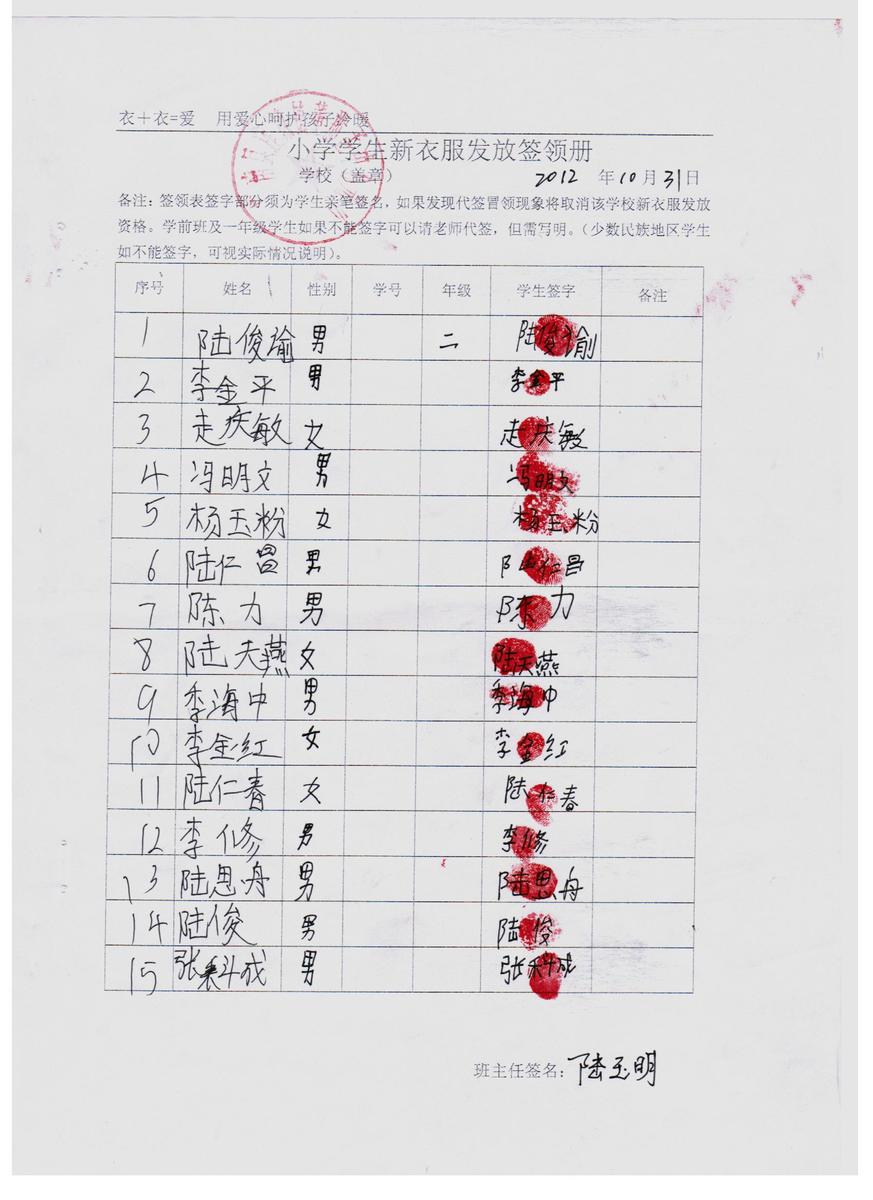 衣+衣=爱 用爱心呵护孩子冷暖
小学学生新衣服发放签领册
学校（盖章） 2012 年10月31日
备注：签领表签字部分须为学生亲笔签名，如果发现代签冒领现象将取消该学校新衣服发放
资格。学前班及一年级学生如果不能签字可以请老师代签，但需写明。（少数民族地区学生
如不能签字，可视实际情况说明）。
序号 姓名 性别 学号 年级 学生签字 备注
1 陆俊瑜 男 二 陆俊瑜
2 李金平 男 李金平
3 走庆敏 女 走庆敏
4 冯明文 男 冯明文
5 杨玉粉 女 杨玉粉
6 陆仁昌 男 陆仁昌
7 陈力 男 陈力
8 陆天燕 女 陆天燕
9 季海中 男 季海中
10 李金红 女 李金红
11 陆仁春 女 陆仁春
12 李修 男 李修
13 陆思舟 男 陆思舟
14 陆俊 男 陆俊
15 张科成 男 张科成
班主任签名：陆玉明